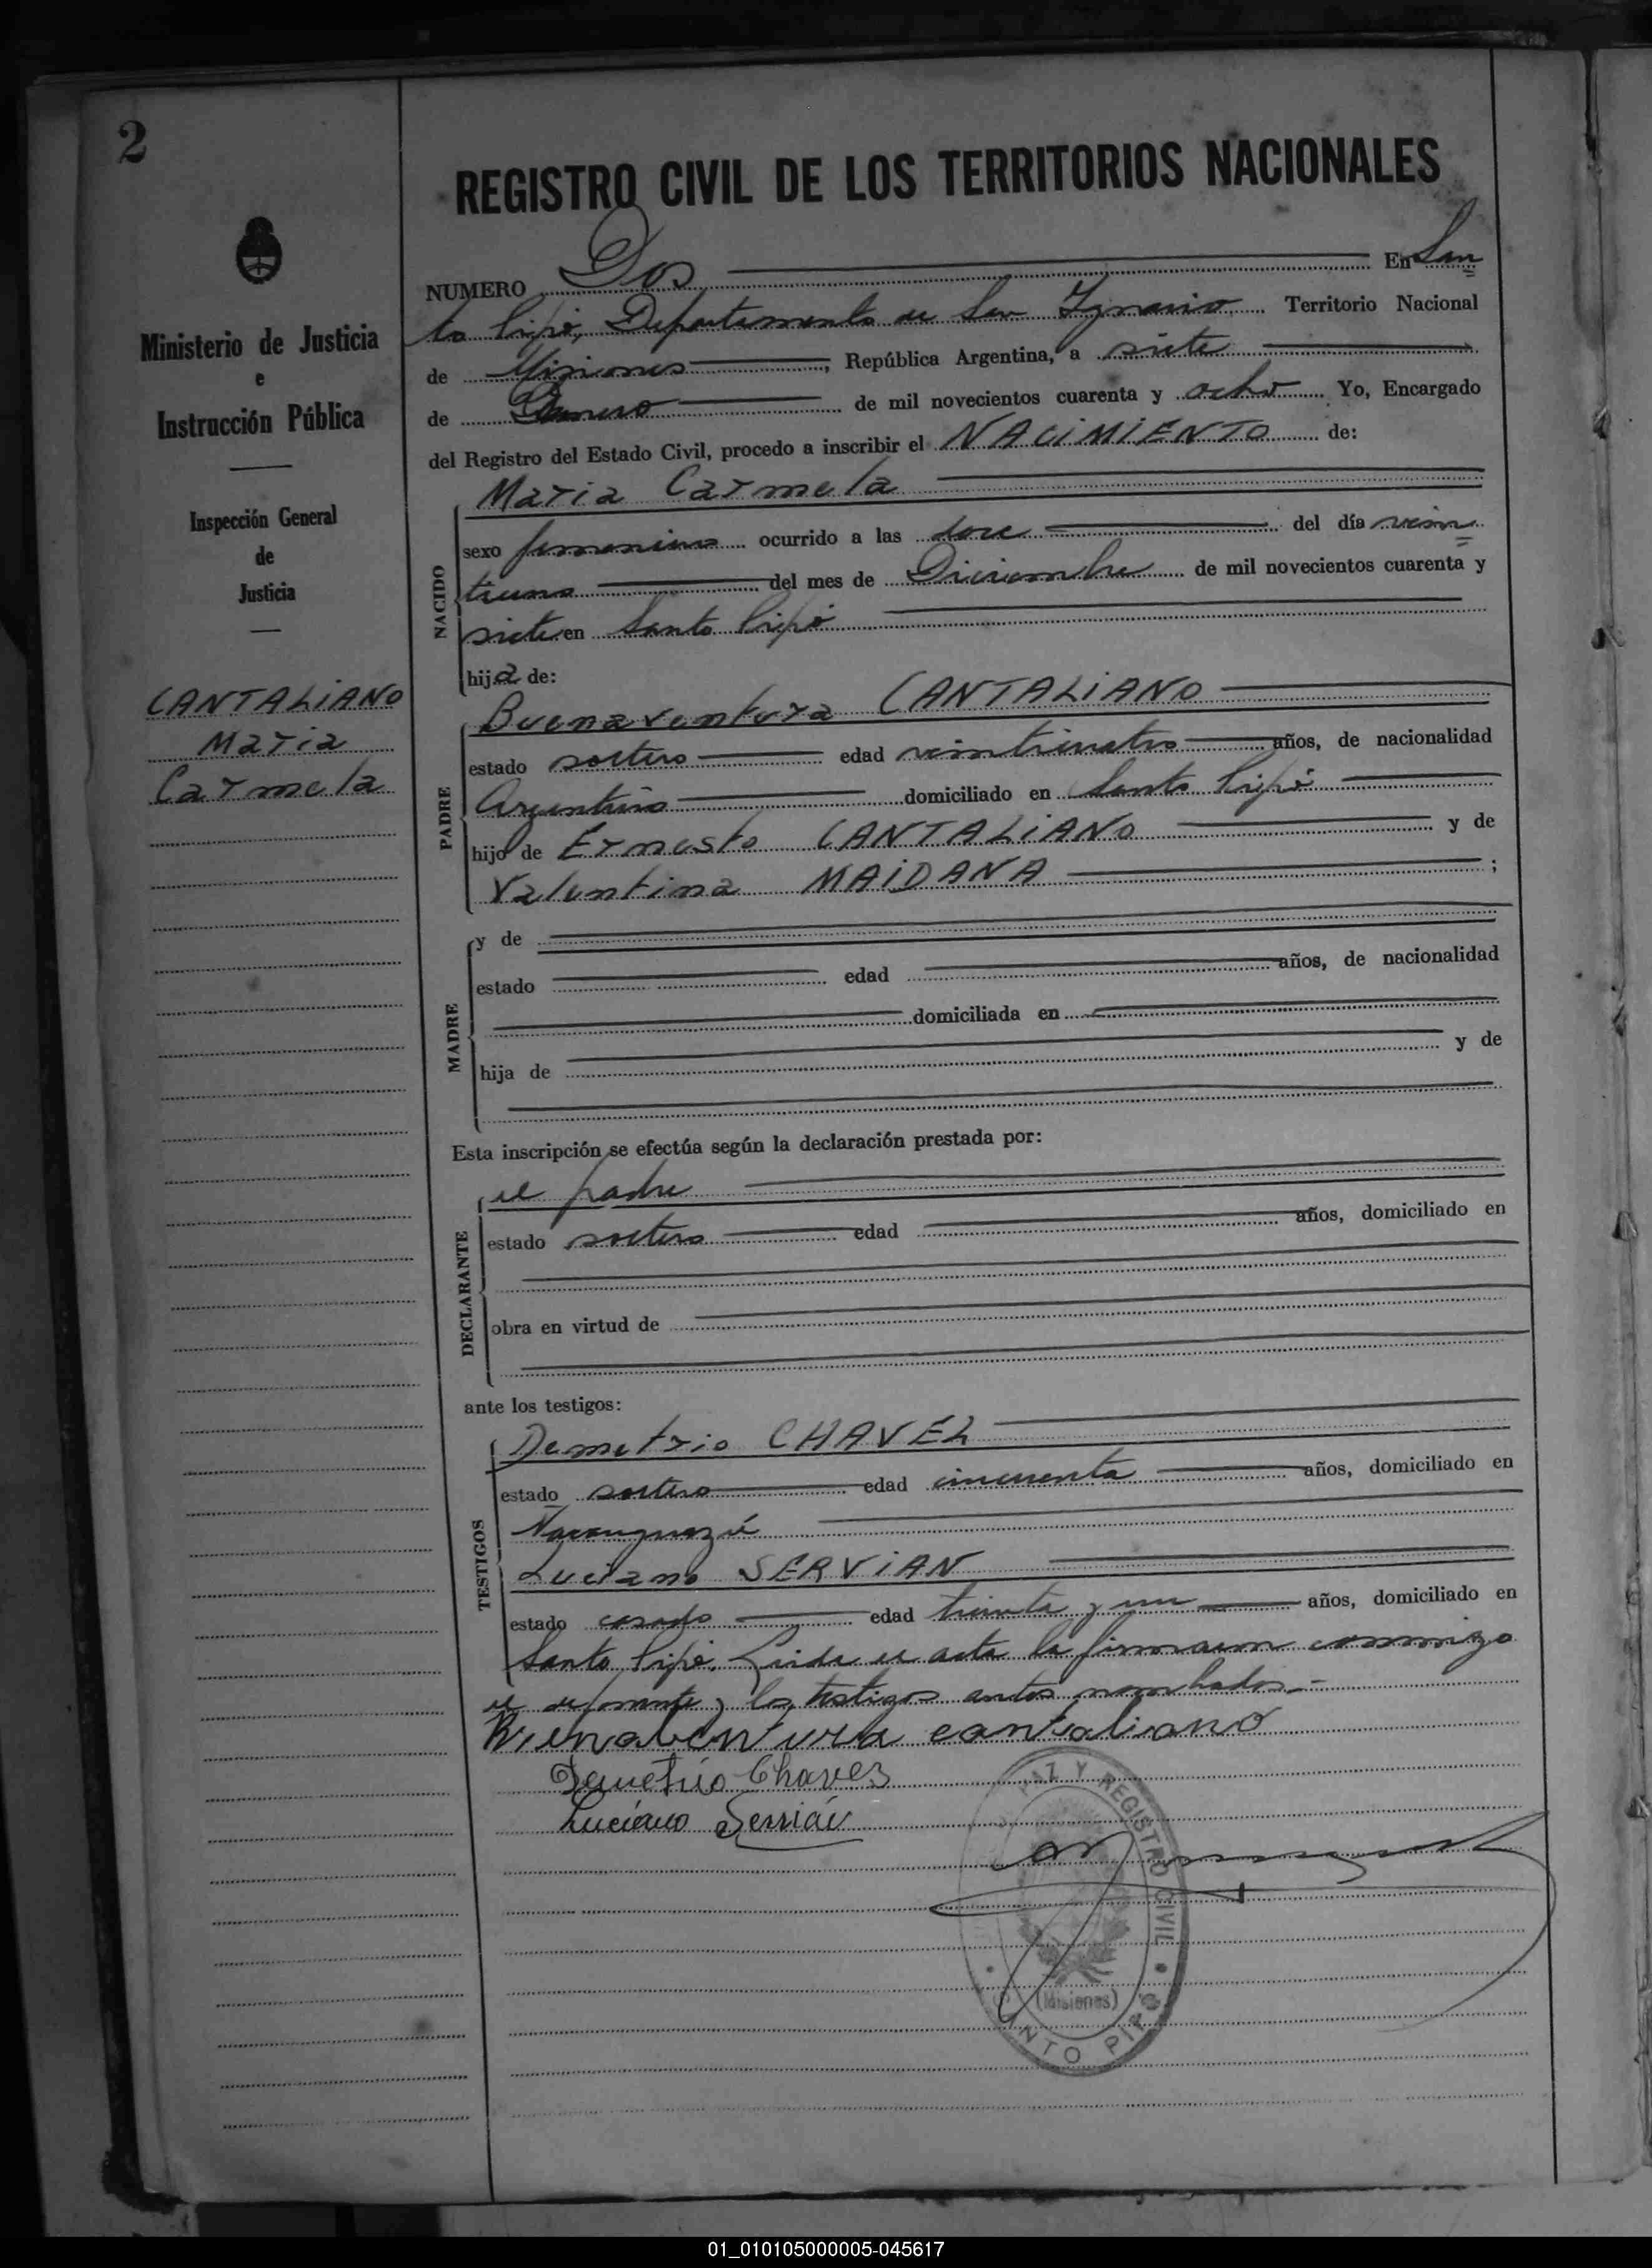 2
REGISTRO CIVIL DE LOS TERRITORIOS NACIONALES
Ministerio de Justicia
e
Instrucción Pública
Inspección General
de
Justicia
CANTALIANO
Maria
Carmela
NUMERO Dos En San
to Pipó, Departamento de San Ignacio Territorio Nacional
de Misiones, República Argentina, a siete
de Enero de mil novecientos cuarenta y ocho Yo, Encargado
del Registro del Estado Civil, procedo a inscribir el NACIMIENTO de:
NACIDO
Maria Carmela
sexo femenino ocurrido a las doce del día vein
tiuno del mes de Diciembre de mil novecientos cuarenta y
siete en Santo Pipó
hija de:
PADRE
Buenaventura CANTALIANO
estado soltero edad veinticuatro años, de nacionalidad
Argentino domiciliado en Santo Pipó
hijo de Ernesto CANTALIANO y de
Valentina MAIDANA ;
MADRE
y de
estado edad años, de nacionalidad
domiciliada en
hija de y de
Esta inscripción se efectúa según la declaración prestada por:
DECLARANTE
el padre
estado soltero edad años, domiciliado en
obra en virtud de
ante los testigos:
TESTIGOS
Demetrio CHAVEZ
estado soltero edad cincuenta años, domiciliado en
Luciano SERVIAN
estado casado edad treinta y un años, domiciliado en
Santo Pipó. Leida el acta la firmaron conmigo
el y los testigos antes nombrados.-
Buenabentura cantaliano
Demetrio Chavez
Luciano Servián
PAZ Y REGISTRO CIVIL
(Misiones)
SANTO PIPÓ
01_010105000005-045617